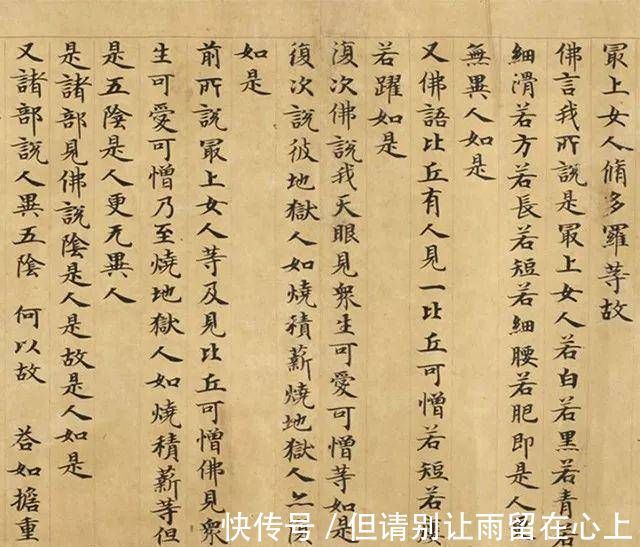 冣上女人脩多羅等故
佛言我所說是冣上女人若白若黑若青若
細滑若方若長若短若細腰若肥即是人
無異人如是
又佛語比丘有人見一比丘可憎若短若
若躍如是
復次佛說我天眼見衆生可愛可憎等如是
復次說彼地獄人如燒積薪燒地獄人亦
如是
前所說冣上女人等及見比丘可憎佛見衆
生可愛可憎乃至燒地獄人如燒積薪等但
是五陰是人更无異人
是諸部見佛說陰是人是故是人如是
又諸部說人異五陰 何以故 荅如擔重
快传号 / 但请别让雨留在心上